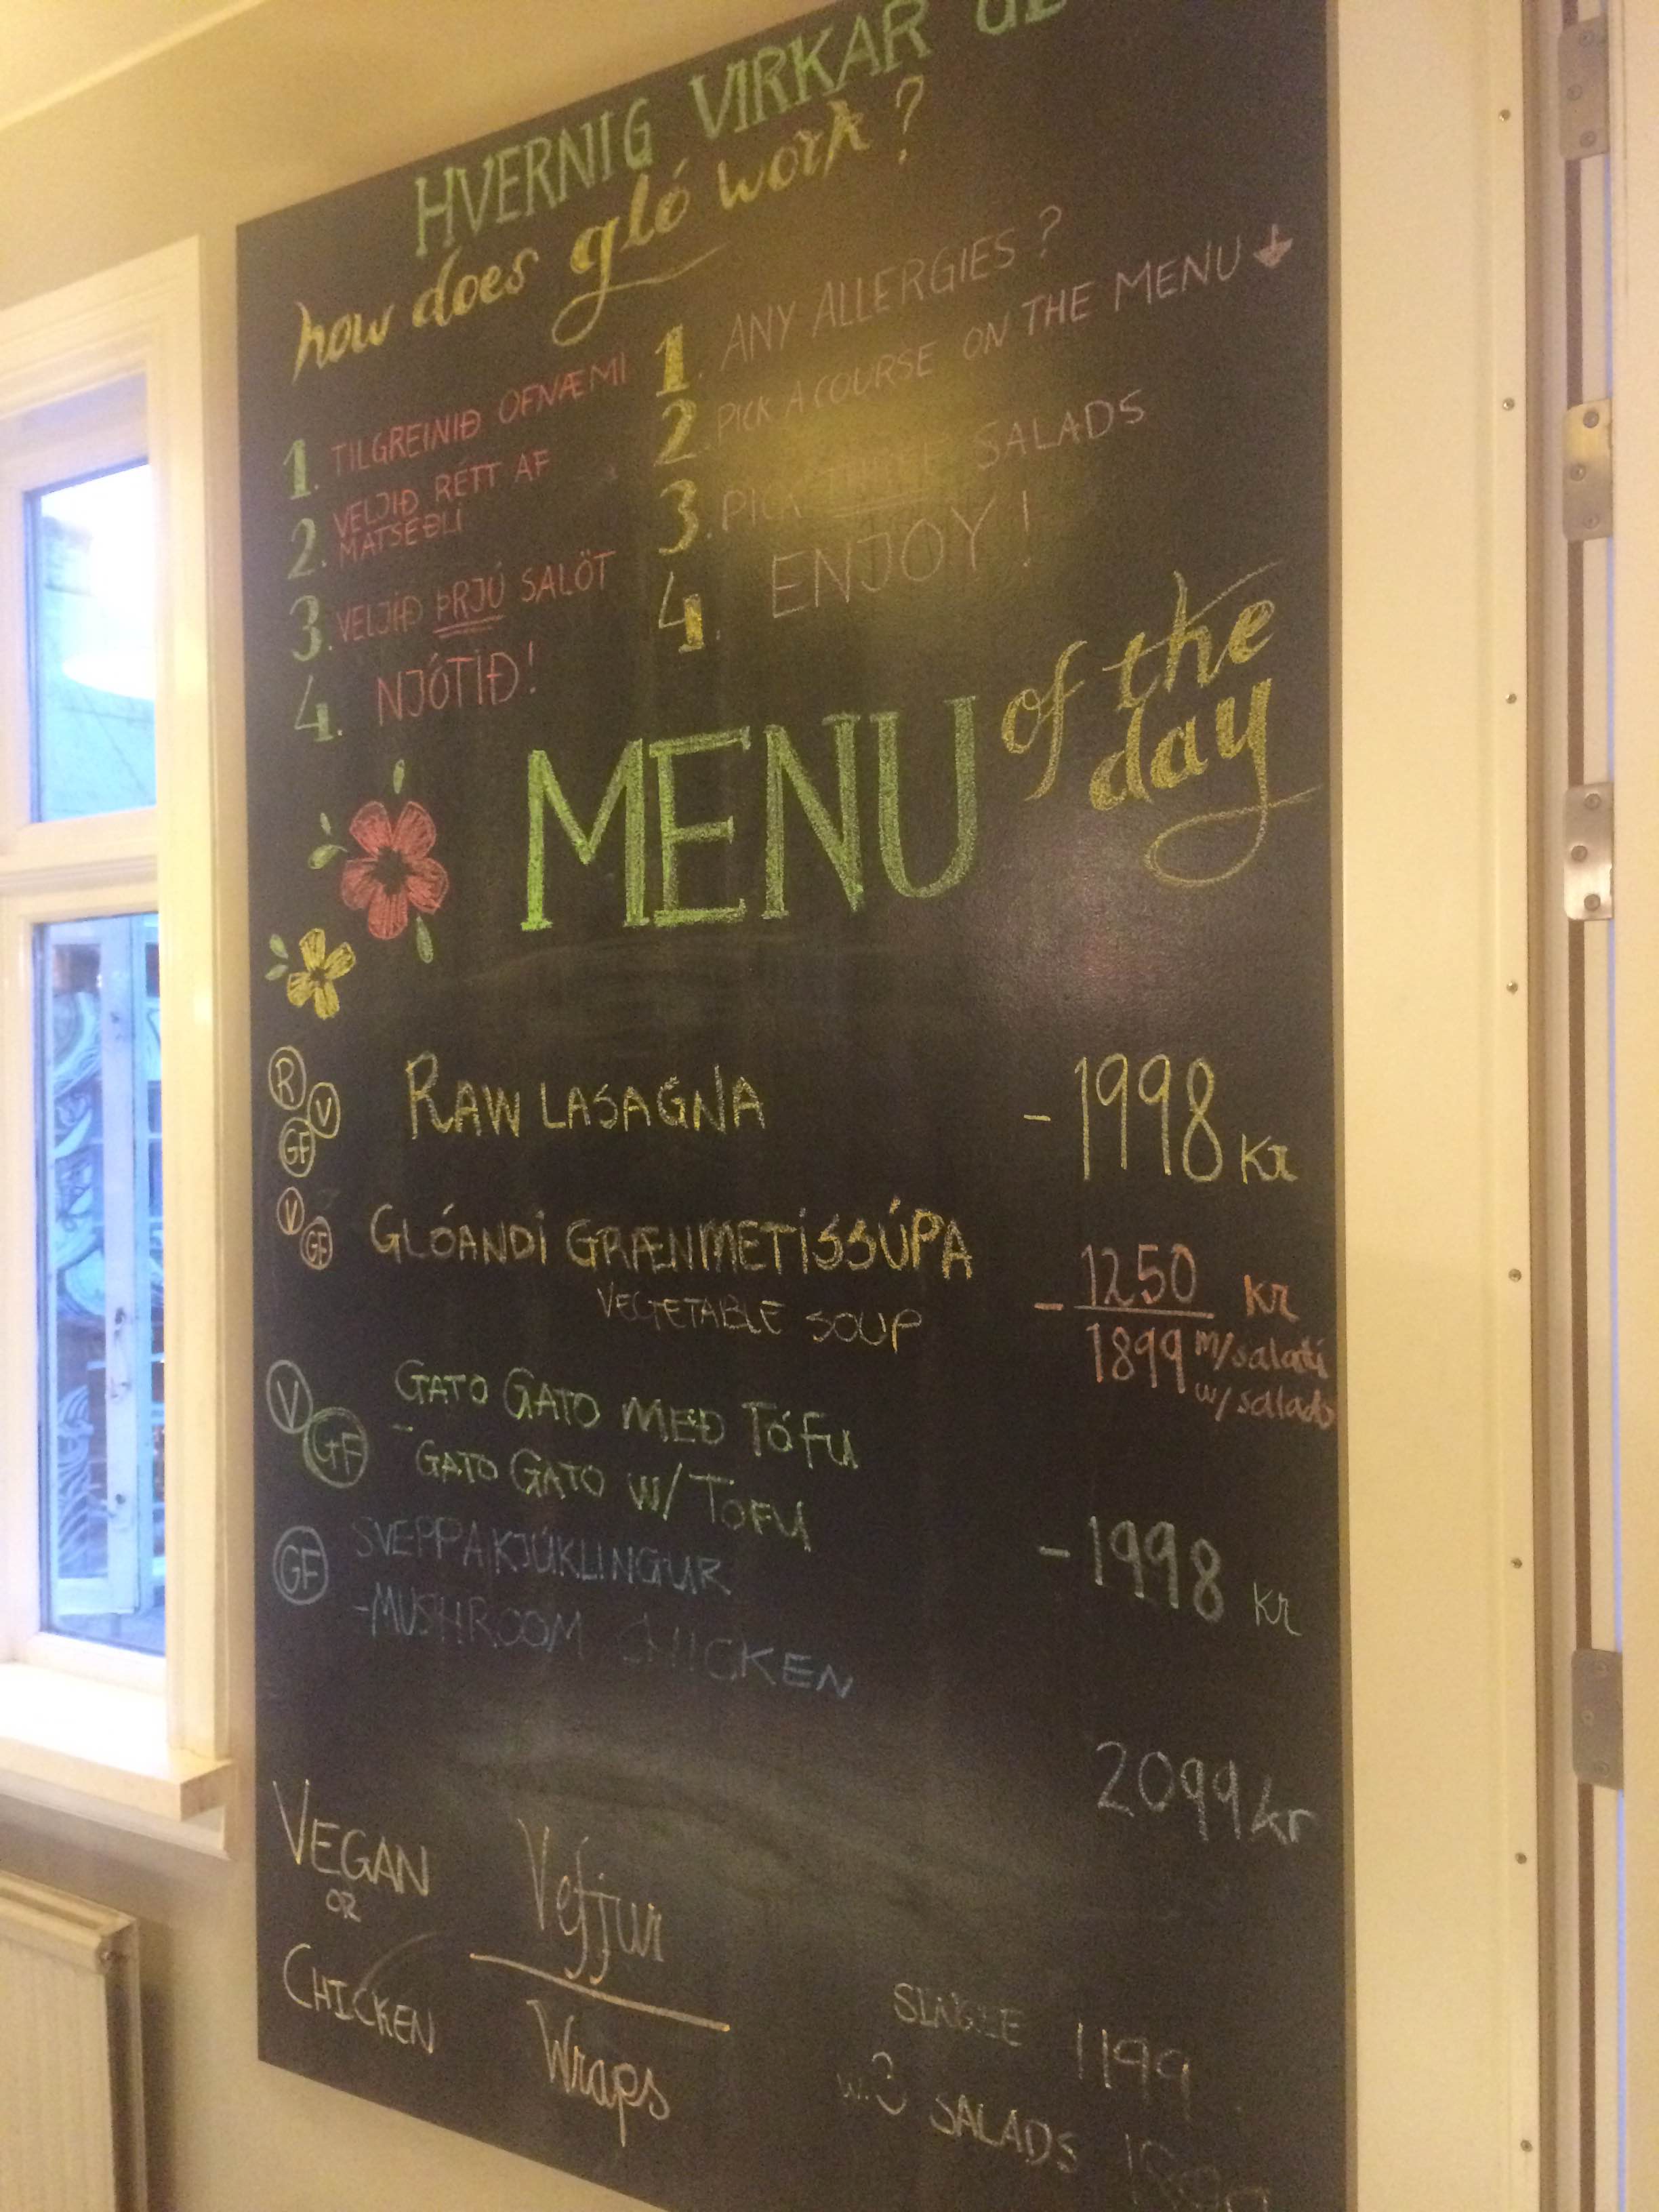 HVERNIG VIRKAR
how does gló work?
1. TILGREINIÐ OFNÆMI
2. VELJIÐ RÉTT AF
MATSEÐLI
3. VELJIÐ ÞRJÚ SALÖT
4. NJÓTIÐ!
1. ANY ALLERGIES?
2. PICK A COURSE ON THE MENU
3. PICK THREE SALADS
4. ENJOY!
MENU of the
day
R V GF RAW LASAGNA - 1998 Kr
V GF GLÓANDI GRÆNMETISSÚPA - 1250 kr
VEGETABLE SOUP 1899 m/salati
w/salads
V GF GATO GATO MEÐ TÓFU
- GATO GATO W/TOFU - 1998 kr
GF SVEPPAKJÚKLINGUR
- MUSHROOM CHICKEN
2099 kr
VEGAN
OR
CHICKEN
Vefjur
Wraps
SINGLE 1199
w. 3 SALADS